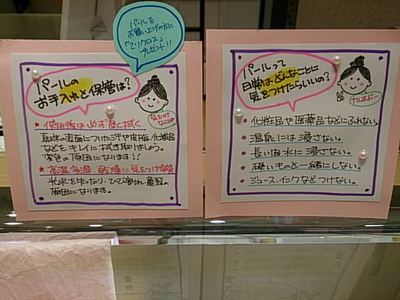 パールを
お買い上げの方に
プレゼント!!
パールの
お手入れと保管は?
★使用後は必ず
真珠の表面についた汗や皮脂、化粧品
などをキレイにふき取りましょう。
変色の原因になります!!
★高温、多湿、乾燥に気をつけて保管
光沢を失ったり、ひび割れ、
原因になります。
パールって
日常はどんなことに
気をつけたらいいの?
ナルホド
・化粧品や医薬品などにふれない。
・温泉には浸さない。
・長い間水に浸さない。
・硬いものと一緒にしない。
・ジュース・インクなどつけない。